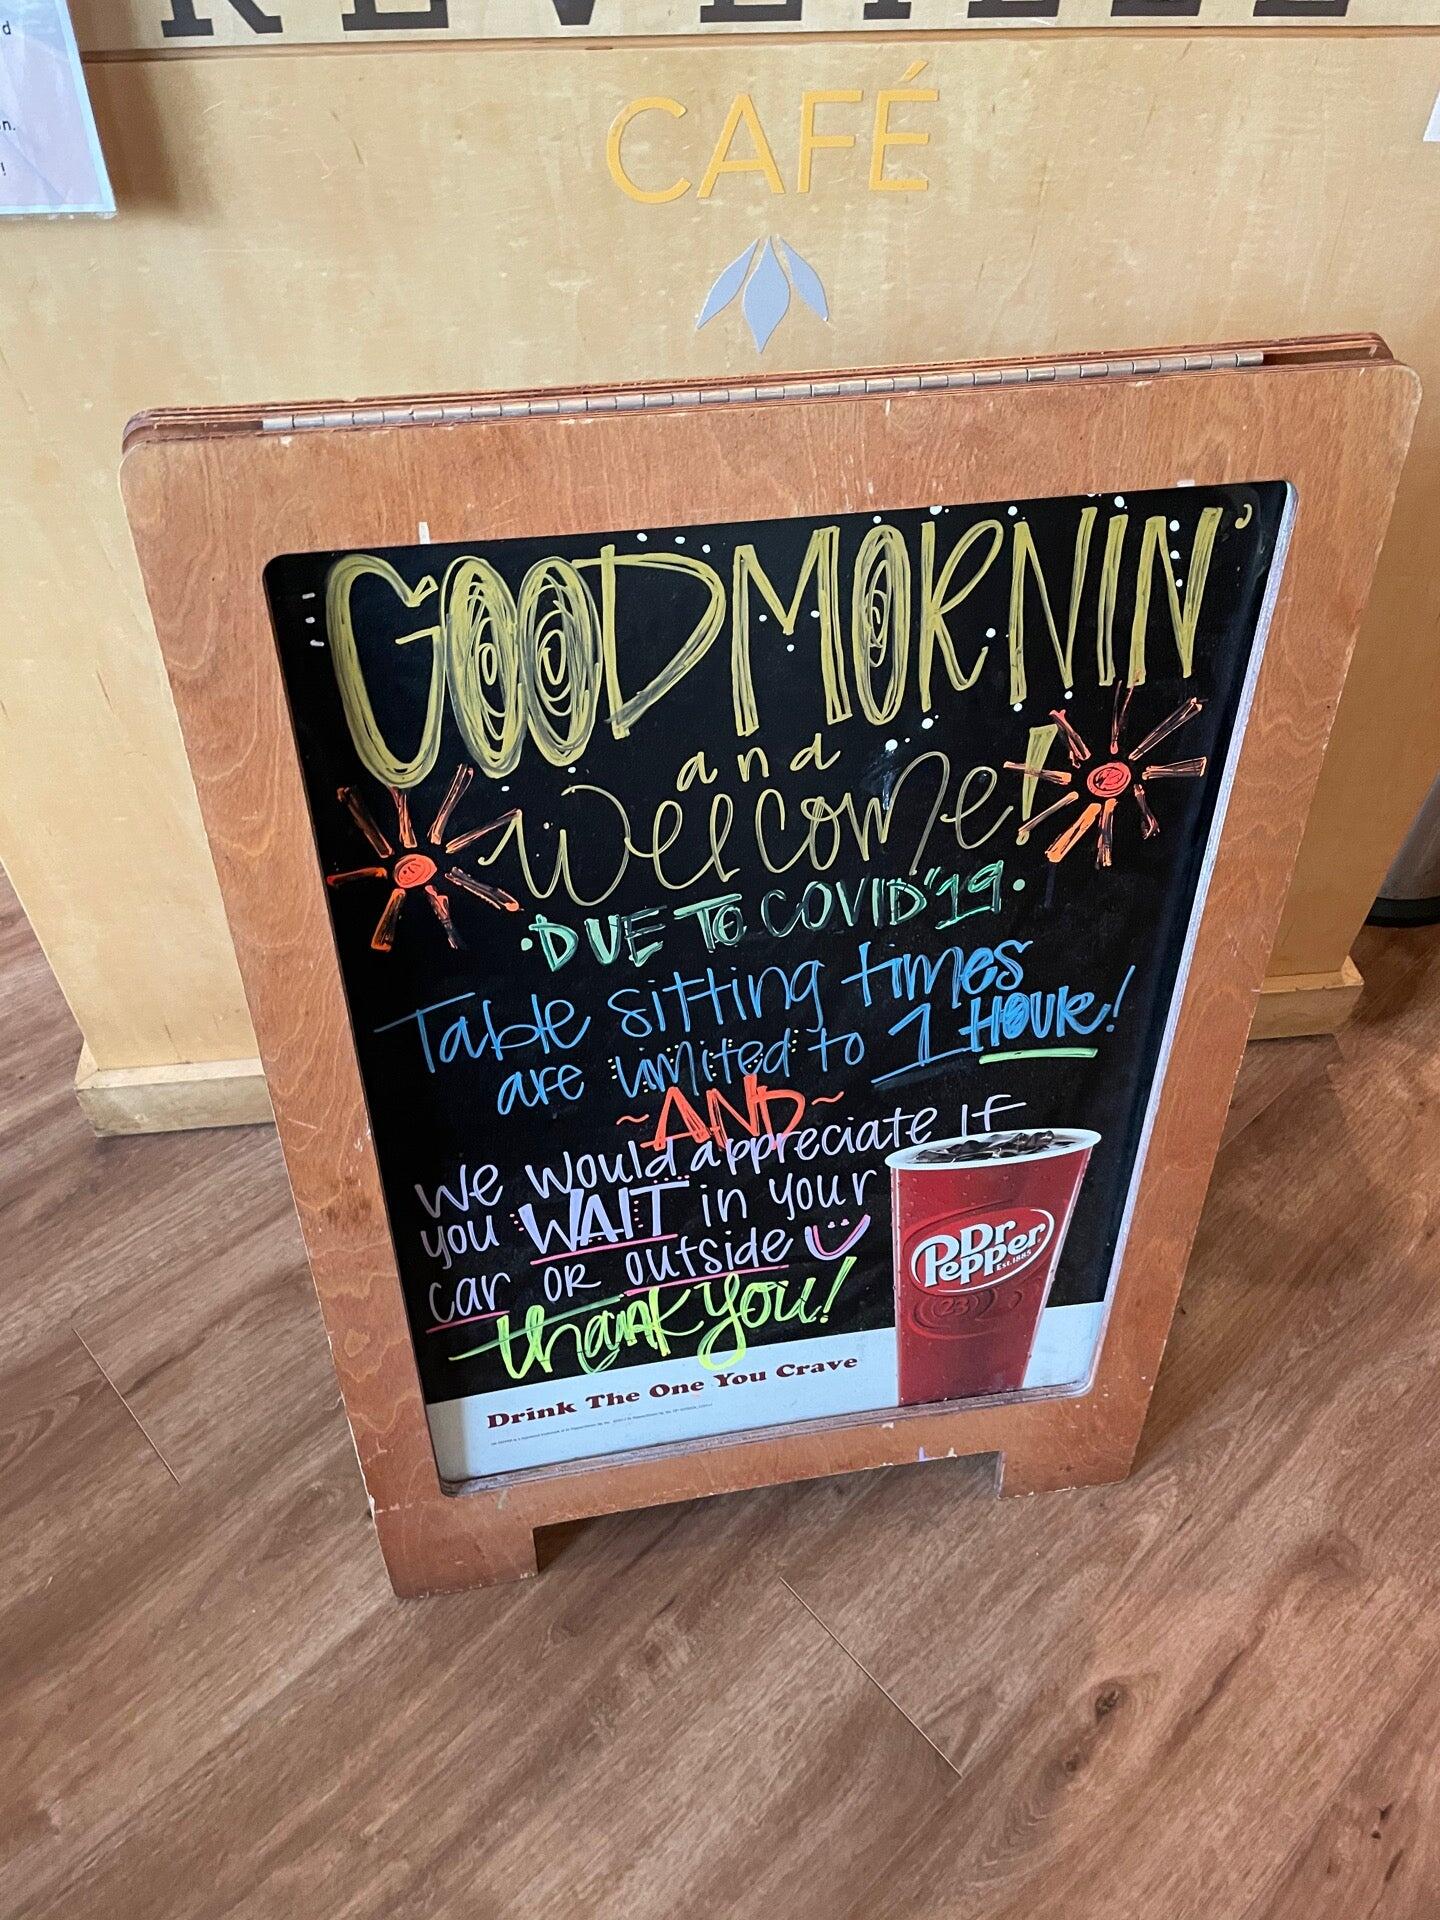 CAFÉ
GOOD MORNIN'
and
welcome!
·DUE TO COVID'19·
Table sitting times
are limited to 1 HOUR!
~AND~
we would appreciate IF
you WAIT in your
car OR outside
thank you!
Dr
Pepper
EST. 1885
23
Drink The One You Crave